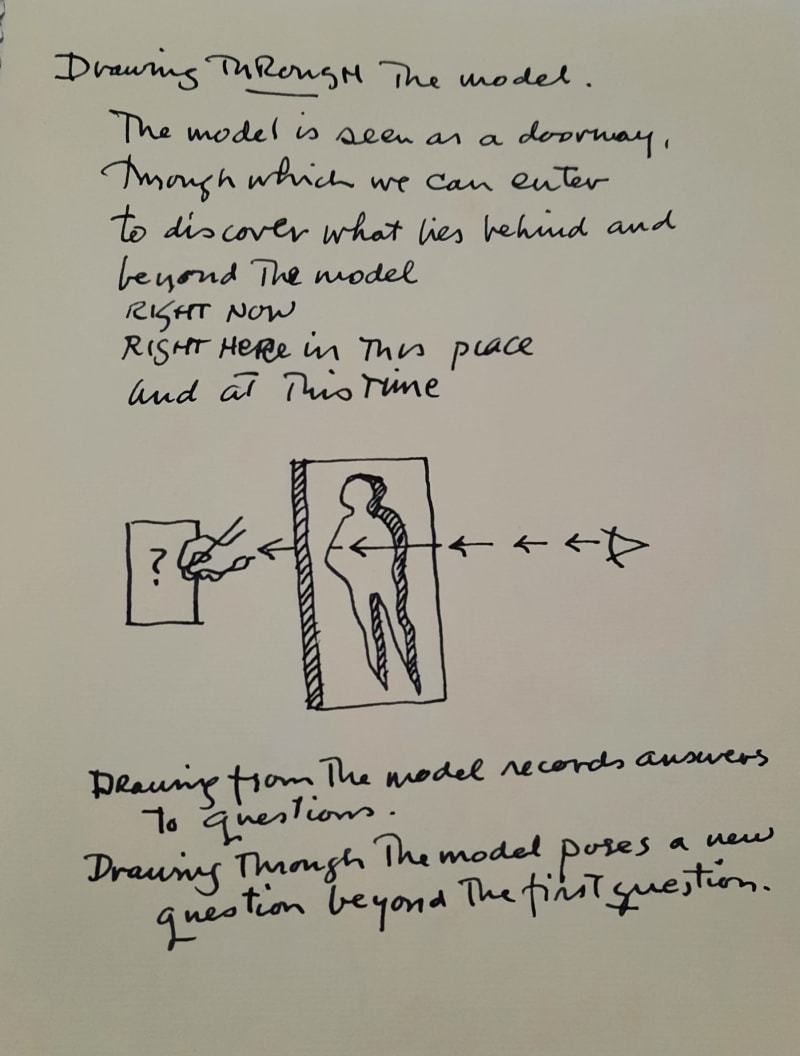 Drawing THROUGH The model.
The model is seen as a doorway,
Through which we can enter
to discover what lies behind and
beyond The model
RIGHT NOW
RIGHT HERE in This place
and at This Time
?
Drawing from The model records answers
To questions.
Drawing Through The model poses a new
question beyond The first question.